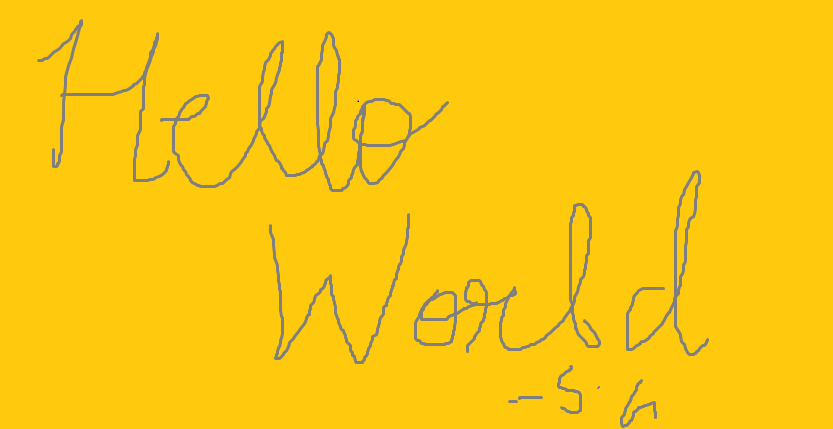 Hello
World
- S. G